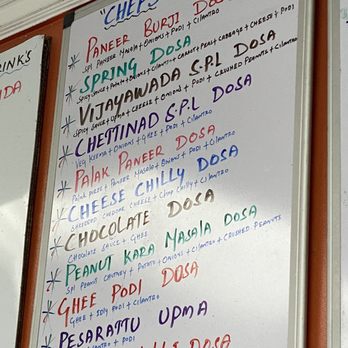 "CHEF'S
PANEER BURJI DOSA
SPL PANEER MASALA + ONIONS + PODI + CILANTRO
RINK'S
SPRING DOSA
DA
VIJAYAWADA S.P.L DOSA
SPICY SAUCE + UPMA + CHEESE + ONIONS + PODI + CRUSHED PEANUTS + CILANTRO
CHETTINAD S.P.L DOSA
VEG KEEMA + ONIONS + GHEE + PODI + CILANTRO
PALAK PANEER DOSA
PALAK PUREE + PANEER MASALA + ONIONS + PODI + CILANTRO
CHEESE CHILLY DOSA
SHREDDED CHEDDAR CHEESE + CHOP CHILLY + CILANTRO
CHOCOLATE DOSA
CHOCOLATE SAUCE + GHEE
PEANUT KARA MASALA DOSA
SPL PEANUT CHUTNEY + POTATO + ONIONS + CILANTRO + CRUSHED PEANUTS
GHEE PODI DOSA
GHEE + IDLY PODI + CILANTRO
PESARATTU UPMA
+ PODI
DOSA